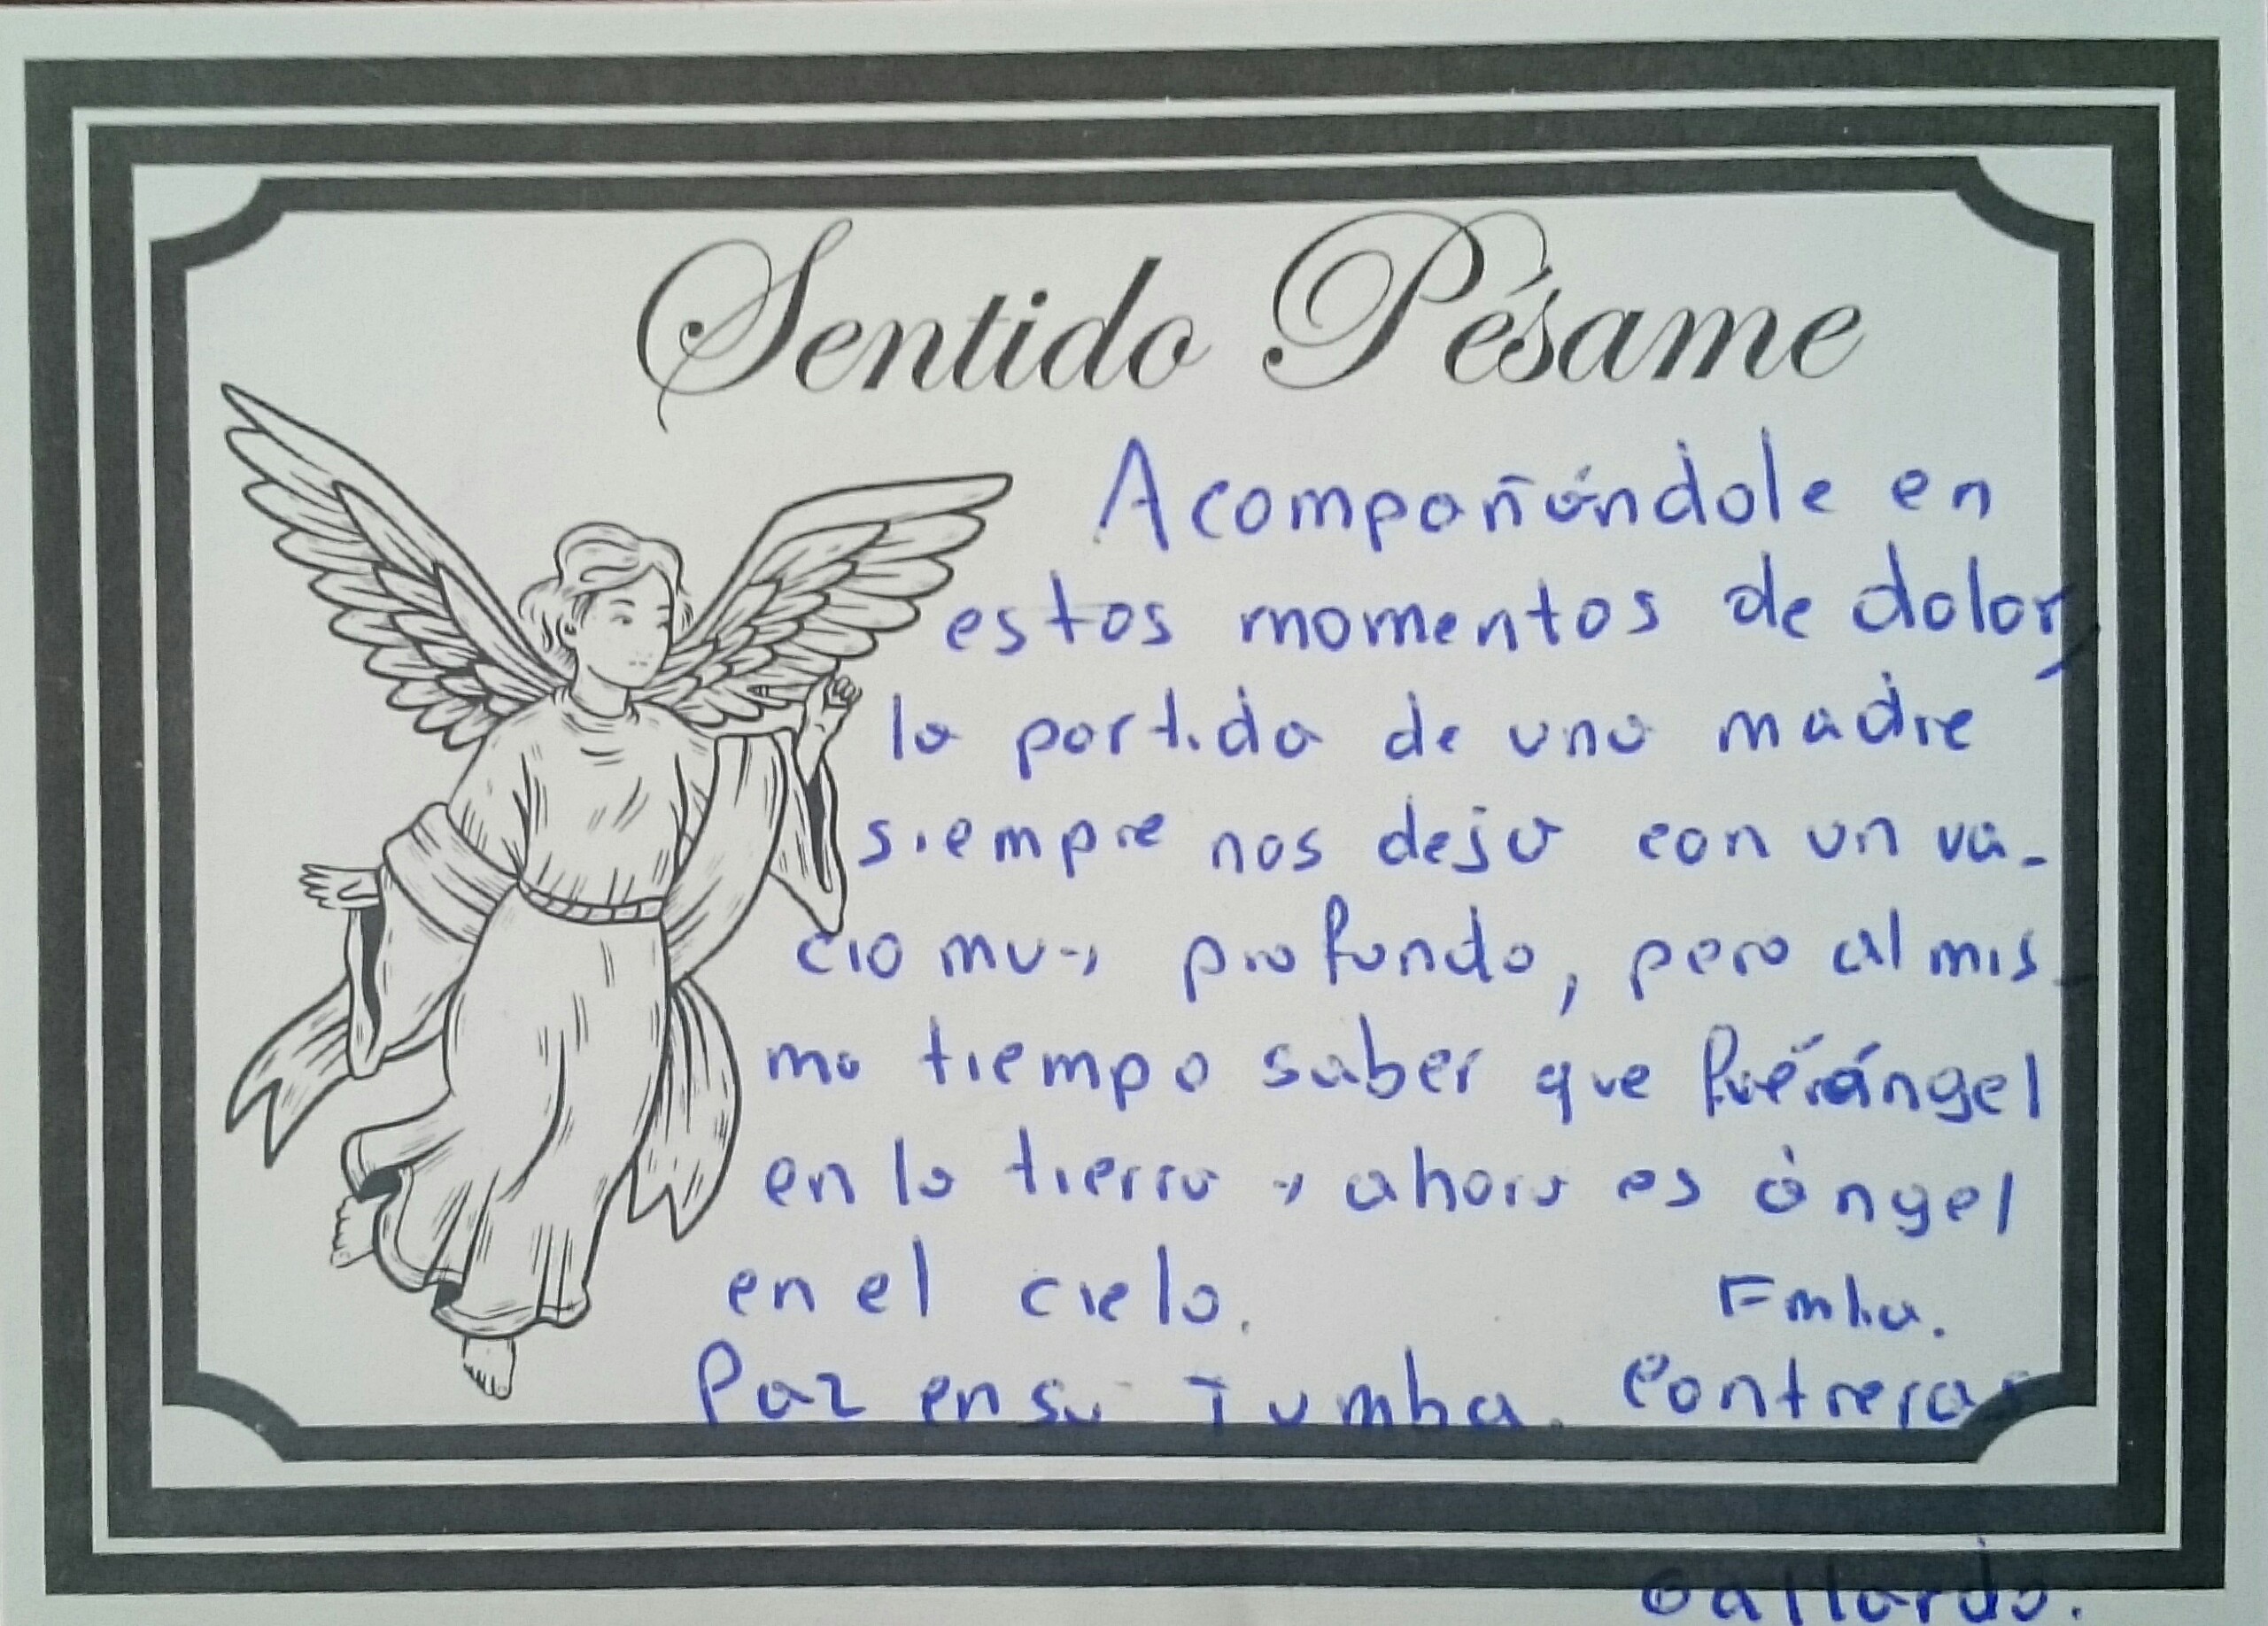 Sentido Pésame
Acompañándole en
estos momentos de dolor,
la partida de una madre
siempre nos deja con un va-
cio muy profundo, pero al mis-
mo tiempo saber que fué ángel
en la tierra y ahora es ángel
en el cielo.
Fmlia.
Paz en su Tumba. Contreras
Gallardo.